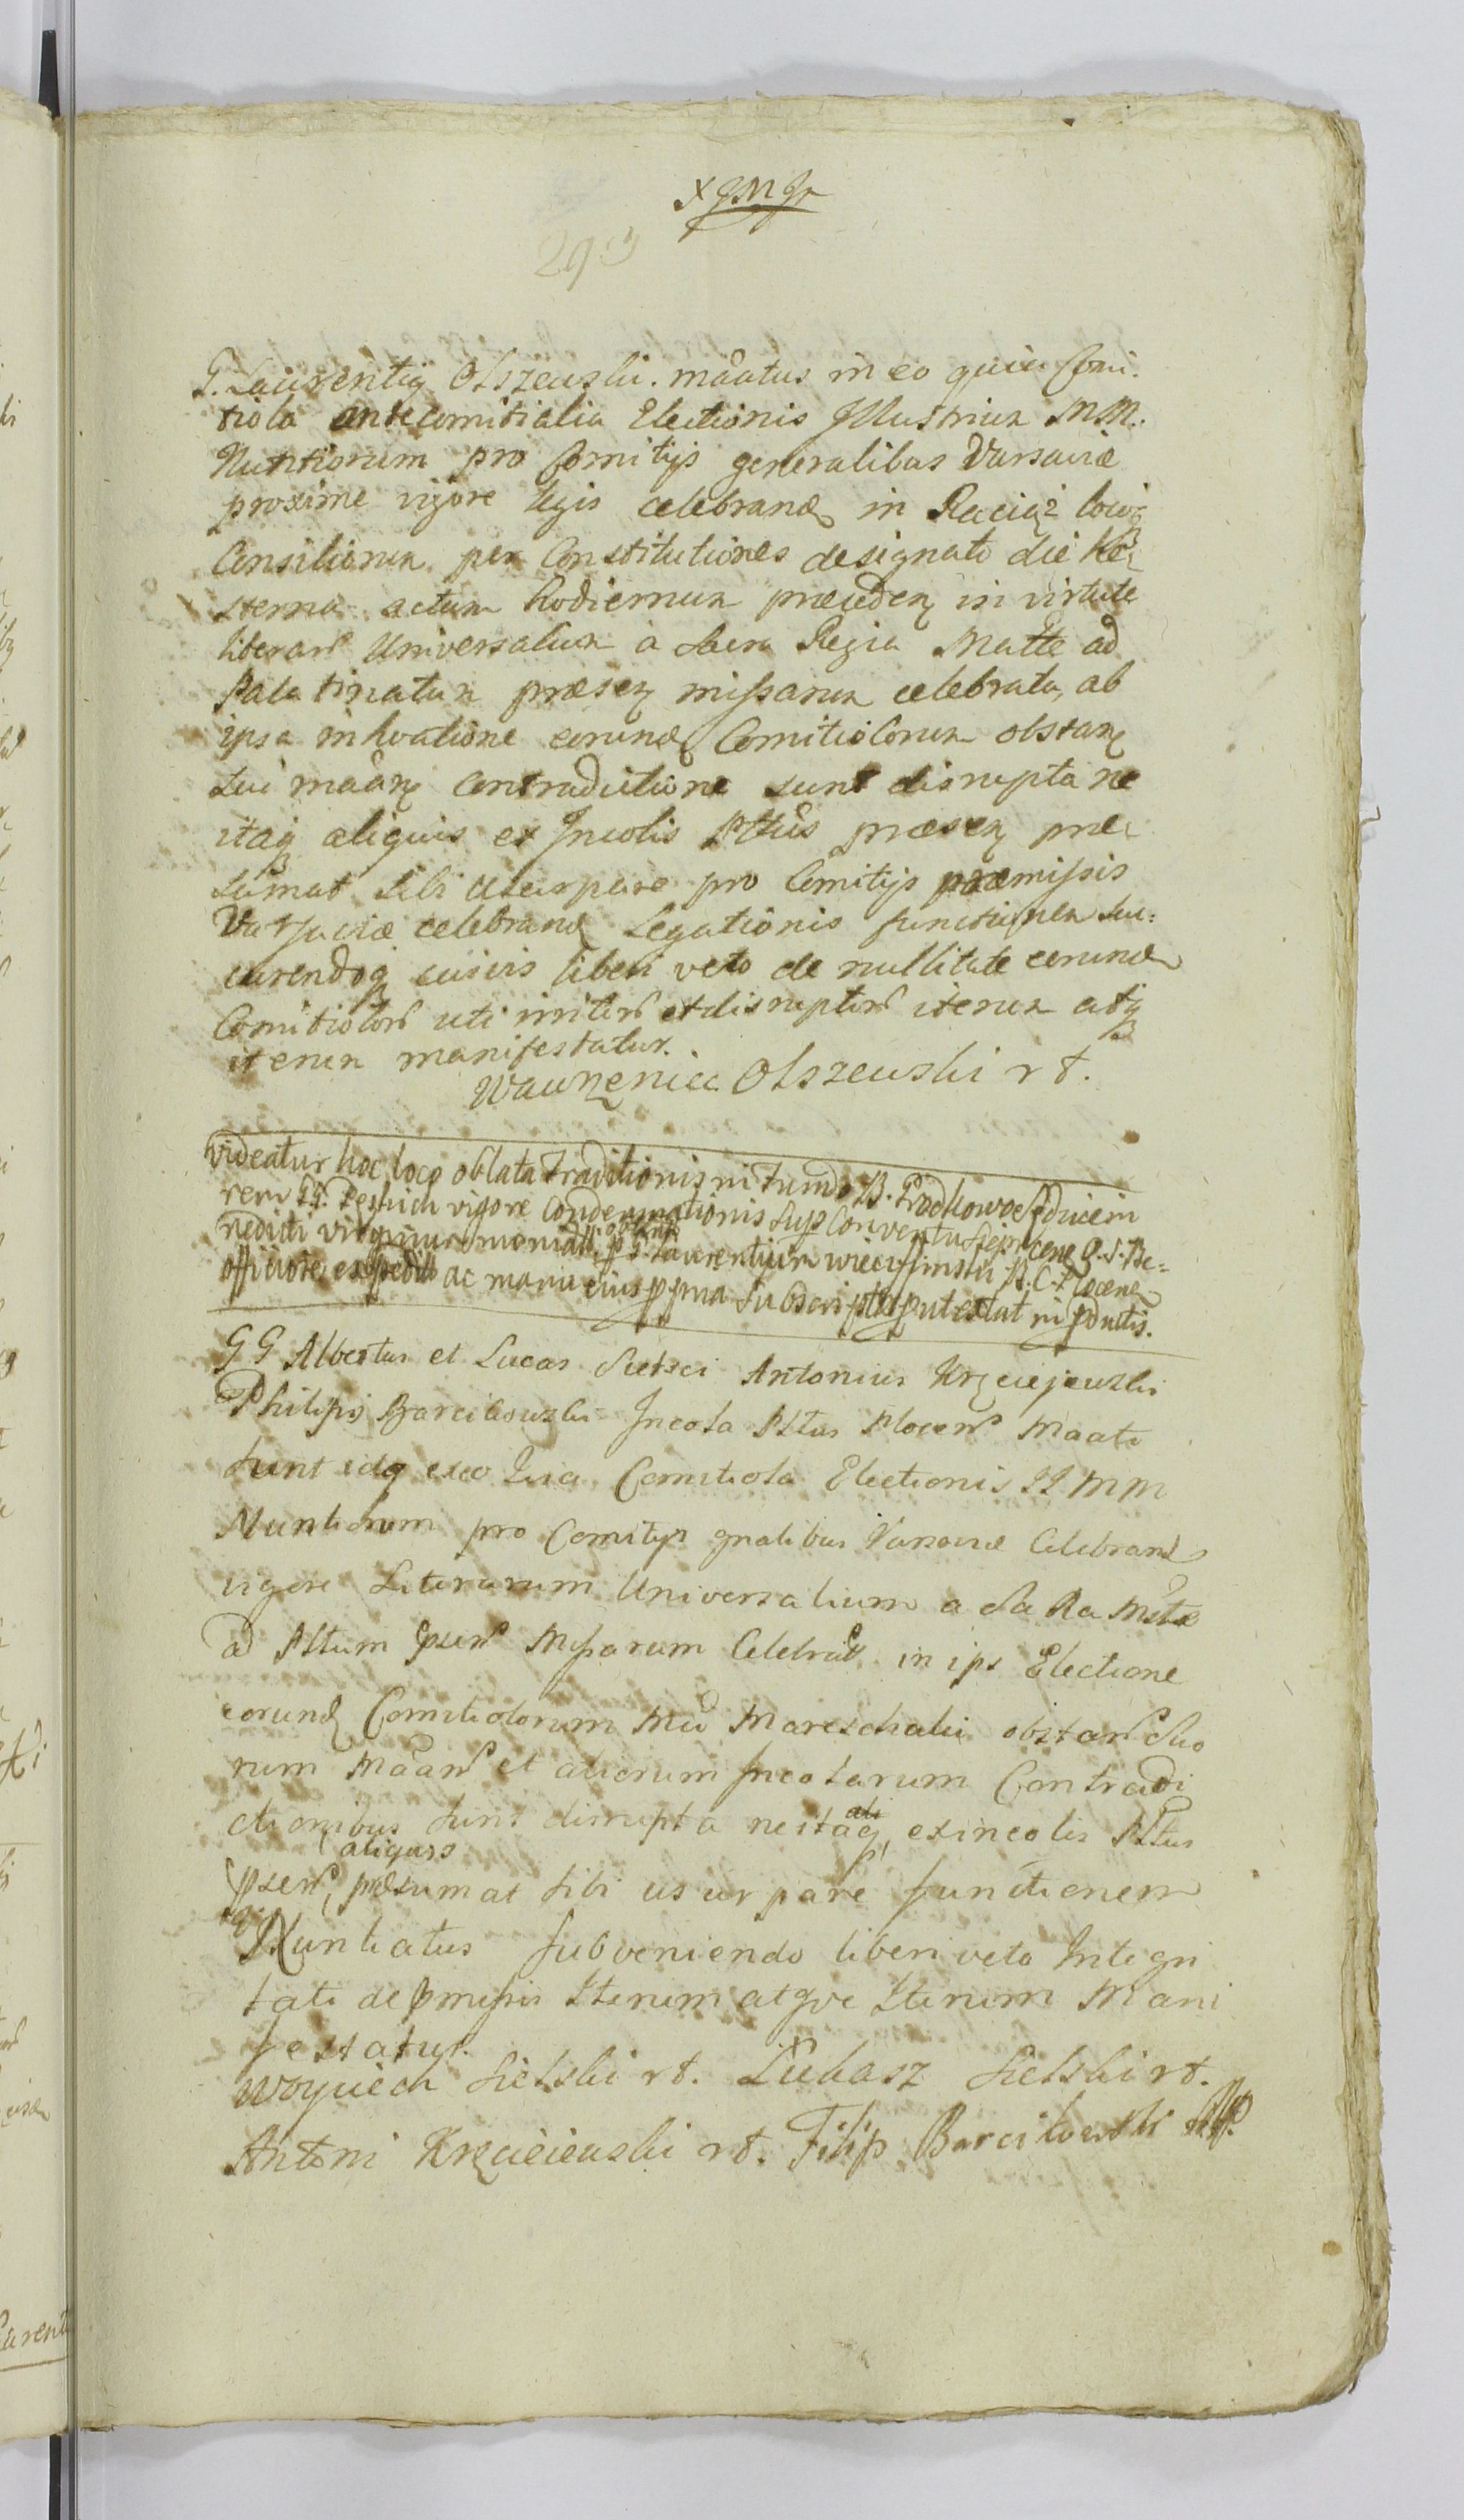 293
G. Laurentig Olszewski. maatus in eo quia Comi.
tiola antecomitialia Electionis Illustrium MM.
Nuntiorum pro Comitijs generalibus Varsaviæ
proxime vigore legis celebrand in Raciąz locoq
Consiliorum per Constitutiones designato die He
sterna actum hodiernum præceden in virtute
literar Universalium a Sacra Regia Matte ad
Palatinatum præsen missarum celebrata, ab
ipsa inhoatione eorund Comitiolorum obstan
sui maan Contradictione sunt disrupta ne
itaq aliquis ex Incolis Pttus præsen præ
sumat sibi Usurpare pro Comitijs præmissis
Varsaviæ celebrand Legationis functionem suc:
curendoq cuivis liberi veto de nullitate eorund
Comitiolor uti irritor et disruptor iterum atq
iterum manifestatur.
Wawrzeniec Olszewski rt.
videatur hoc loco oblata traditionis in fundo B. Prochowo
rem vigore Condemnationis Sup Conventu O. S. Be=
nedicti virginum monial p G. Laurentium B. C. Plocen
officiose expedit ac manu eius ppria Subscripta put extat in
G G Albertus et Lucas Sielsci Antonius Krzeciejewski
Philipg Barcikowski Incola Pttus Plocen Maati
sunt idq exeo Quia Comitiola Electionis II MM
Nuntiorum pro Comitijs gnalibus Varsaviæ Celebrand
vigore Literarum Universalium a Sa Ra Mtte
ad Pttum psen Missarum Celebrat in ips Electione
eorund Comitiolorum Mci Mareschalci obstan Suo
rum Maan et aliorum Incolarum Contradi
ctionibus sunt dirrupta ne itaq exincolis Pttus
aliquis
psen præsumat sibi usurpare functionem
Nuntiatus subveniendo liberi veto Integri
tati de pmissis Iterum atque Iterum Mani
festatur.
Woyciech Sielski rt. Łukasz Sielski rt.
Antoni Krzecieiewski rt. Filip Barcikowski